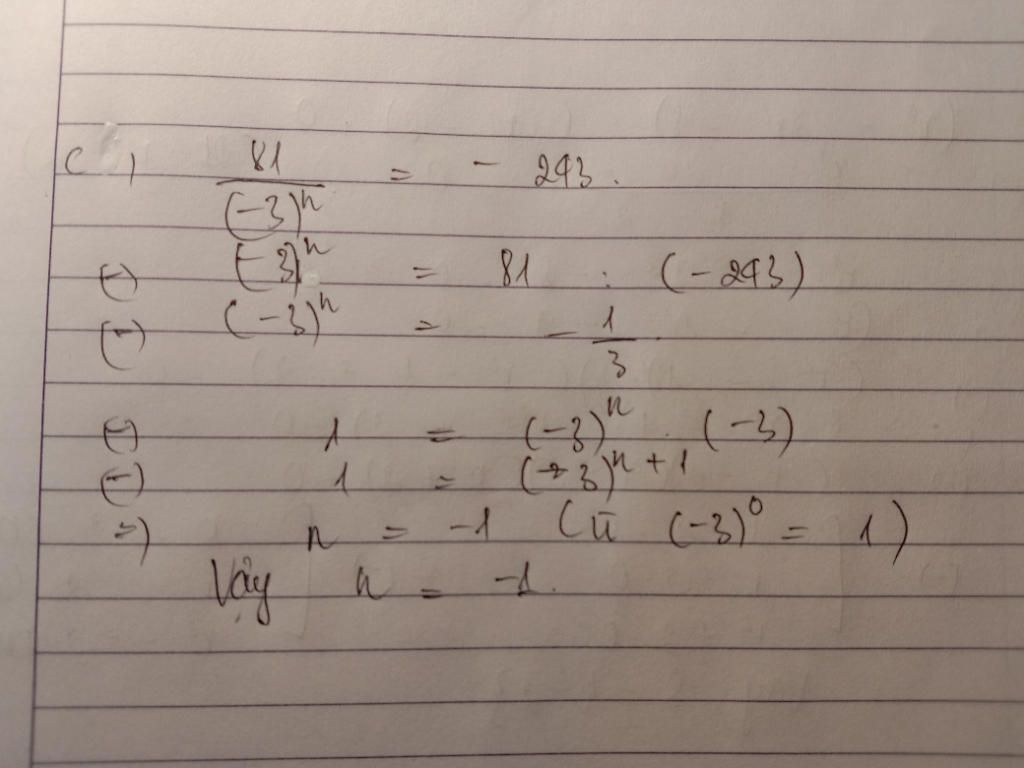 c) 81/(-3)^n = - 243.
(-) (-3)^n = 81 : (-243)
(-) (-3)^n = - 1/3
(-) 1 = (-3)^n . (-3)
(-) 1 = (-3)^n + 1
=) n = -1 (vì (-3)^0 = 1)
Vậy n = -1.